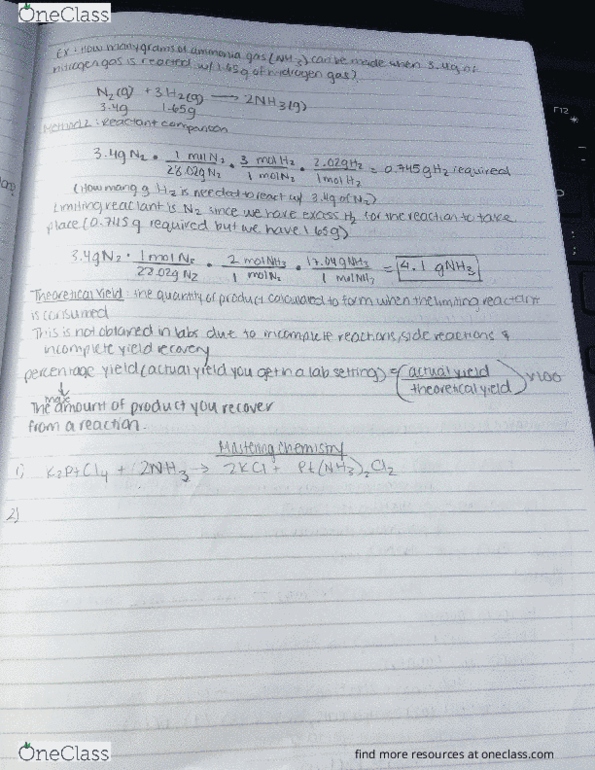 OneClass
Ex: How many grams of ammonia gas (NH3) can be made when 3.4g of
nitrogen gas is reacted w/ 1.65g of hydrogen gas?
N2(g) + 3H2(g) → 2NH3(g)
3.4g 1.65g
: Reactant comparison
3.4g N2 • 1 mol N2 / 28.02g N2 • 3 mol H2 / 1 mol N2 • 2.02g H2 / 1 mol H2 = 0.745g H2 required
(How many g H2 is needed to react w/ 3.4g of N2)
Limiting reactant is N2 since we have excess H2 for the reaction to take
place (0.745g required but we have 1.65g)
3.4g N2 • 1 mol N2 / 28.02g N2 • 2 mol NH3 / 1 mol N2 • 17.04g NH3 / 1 mol NH3 = 4.1 g NH3
Theoretical Yield: the quantity of product calculated to form when the limiting reactant
is consumed
This is not obtained in labs due to incomplete reactions, side reactions &
incomplete yield recovery
percentage yield (actual yield you get in a lab setting) = (actual yield / theoretical yield) x 100
max
The amount of product you recover
from a reaction.
Mastering Chemistry
1) K2PtCl4 + 2NH3 → 2KCl + Pt(NH3)2Cl2
2)
F12
OneClass
find more resources at oneclass.com